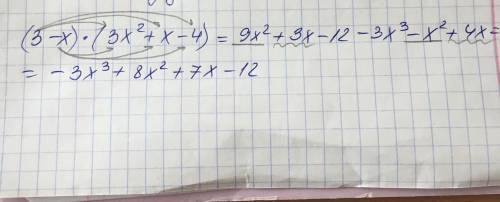 (3-x)·(3x²+x-4) = 9x²+3x-12-3x³-x²+4x=
= -3x³+8x²+7x-12